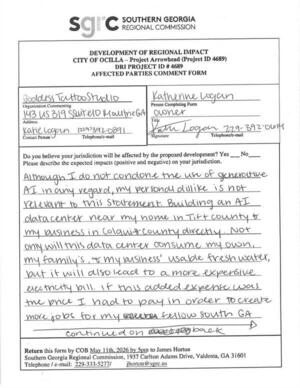 sgrc SOUTHERN GEORGIA
REGIONAL COMMISSION
DEVELOPMENT OF REGIONAL IMPACT
CITY OF OCILLA – Project Arrowhead (Project ID 4689)
DRI PROJECT ID # 4689
AFFECTED PARTIES COMMENT FORM
Goddess Tattoo Studio
Organization Commenting
Katherine Logan
Person Completing Form
143 US 319 Suite 10 Moultrie GA
Address
owner
Title
Katie Logan
Contact Person
Telephone/e-mail
Logan 229-392-
Signature
Telephone/e-mail
Do you believe your jurisdiction will be affected by the proposed development? Yes No
Please describe the expected impacts (positive and negative) on your jurisdiction.
Although I do not condone the use of generative
AI in any regard, my personal dislike is not
relevant to this statement. Building an AI
data center near my home in Tift county &
my business in Colquitt county directly. Not
only will this data center consume my own,
my family's, & my business' usable fresh water,
but it will also lead to a more expensive
electricity bill. If this added expense was
the price I had to pay in order to create
more jobs for my fellow south GA
continued on back
Return this form by COB May 11th, 2026 by 5pm to James Horton
Southern Georgia Regional Commission, 1937 Carlton Adams Drive, Valdosta, GA 31601
Telephone/e-mail: 229-333-5277/ jhorton@sgrc.us